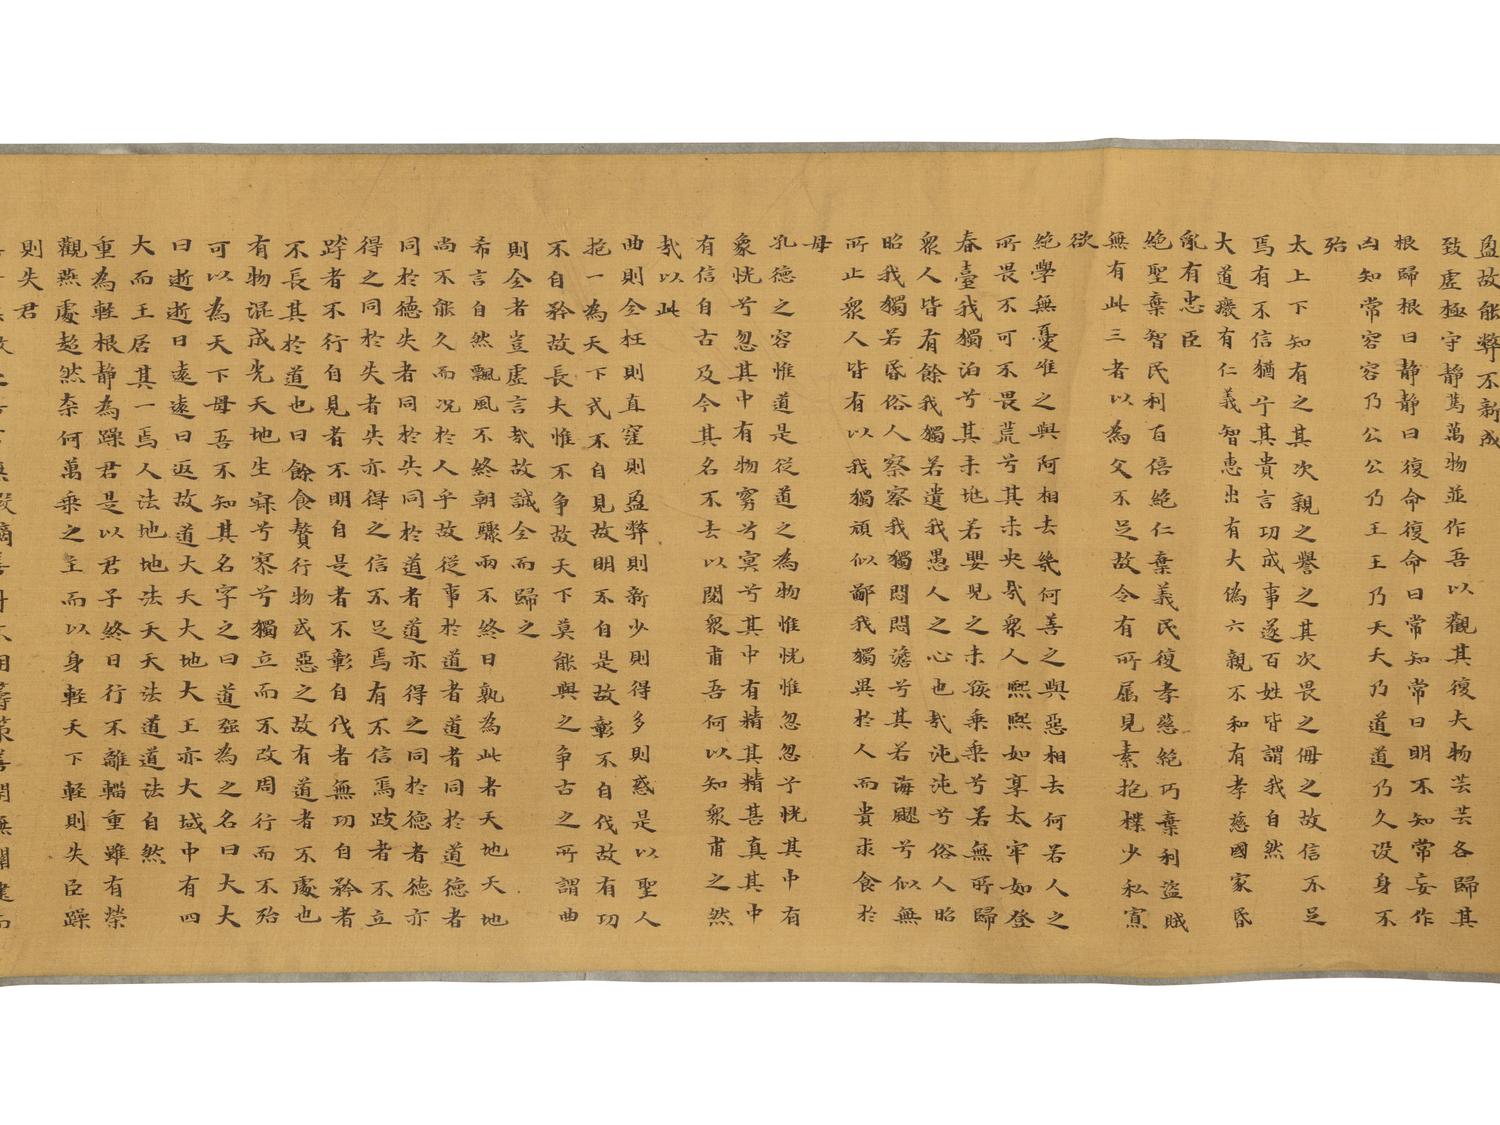 盈故能弊不新成
致虛極守靜篤萬物並作吾以觀其復夫物芸芸各歸其
根歸根曰靜靜曰復命復命曰常知常曰明不知常妄作
凶知常容容乃公公乃王王乃天天乃道道乃久没身不
殆
太上下知有之其次親之譽之其次畏之侮之故信不足
焉有不信猶乎其貴言功成事遂百姓皆謂我自然
大道癈有仁義智惠出有大偽六親不和有孝慈國家昏
亂有忠臣
絕聖棄智民利百倍絕仁棄義民復孝慈絕巧棄利盜賊
無有此三者以為文不足故令有所屬見素抱樸少私寡
欲
絕學無憂唯之與阿相去幾何善之與惡相去何若人之
所畏不可不畏荒兮其未央哉衆人熈熈如享太牢如登
春臺我獨泊兮其未兆若嬰兒之未孩乘乘兮若無所歸
衆人皆有餘我獨若遺我愚人之心也哉沌沌兮俗人昭
昭我獨若昏俗人察察我獨悶悶澹兮其若海飂兮似無
所止衆人皆有以我獨頑似鄙我獨異於人而貴求食於
母
孔德之容惟道是從道之為物惟恍惟忽忽兮恍其中有
象恍兮忽其中有物窈兮冥兮其中有精其精甚真其中
有信自古及今其名不去以閱衆甫吾何以知衆甫之然
哉以此
曲則全枉則直窪則盈弊則新少則得多則惑是以聖人
抱一為天下式不自見故明不自是故彰不自伐故有功
不自矜故長夫惟不争故天下莫能與之争古之所謂曲
則全者豈虛言哉故誠全而歸之
希言自然飄風不終朝驟雨不終日孰為此者天地天地
尚不能久而况於人乎故從事於道者道者同於道德者
同於德失者同於失同於道者道亦得之同於德者德亦
得之同於失者失亦得之信不足焉有不信焉跂者不立
跨者不行自見者不明自是者不彰自伐者無功自矜者
不長其於道也曰餘食贅行物或惡之故有道者不處也
有物混成先天地生寂兮寥兮獨立而不改周行而不殆
可以為天下母吾不知其名字之曰道强為之名曰大大
曰逝逝曰遠遠曰返故道大天大地大王亦大域中有四
大而王居其一焉人法地地法天天法道道法自然
重為輕根靜為躁君是以君子終日行不離輜重雖有榮
觀燕處超然奈何萬乘之主而以身輕天下輕則失臣躁
則失君